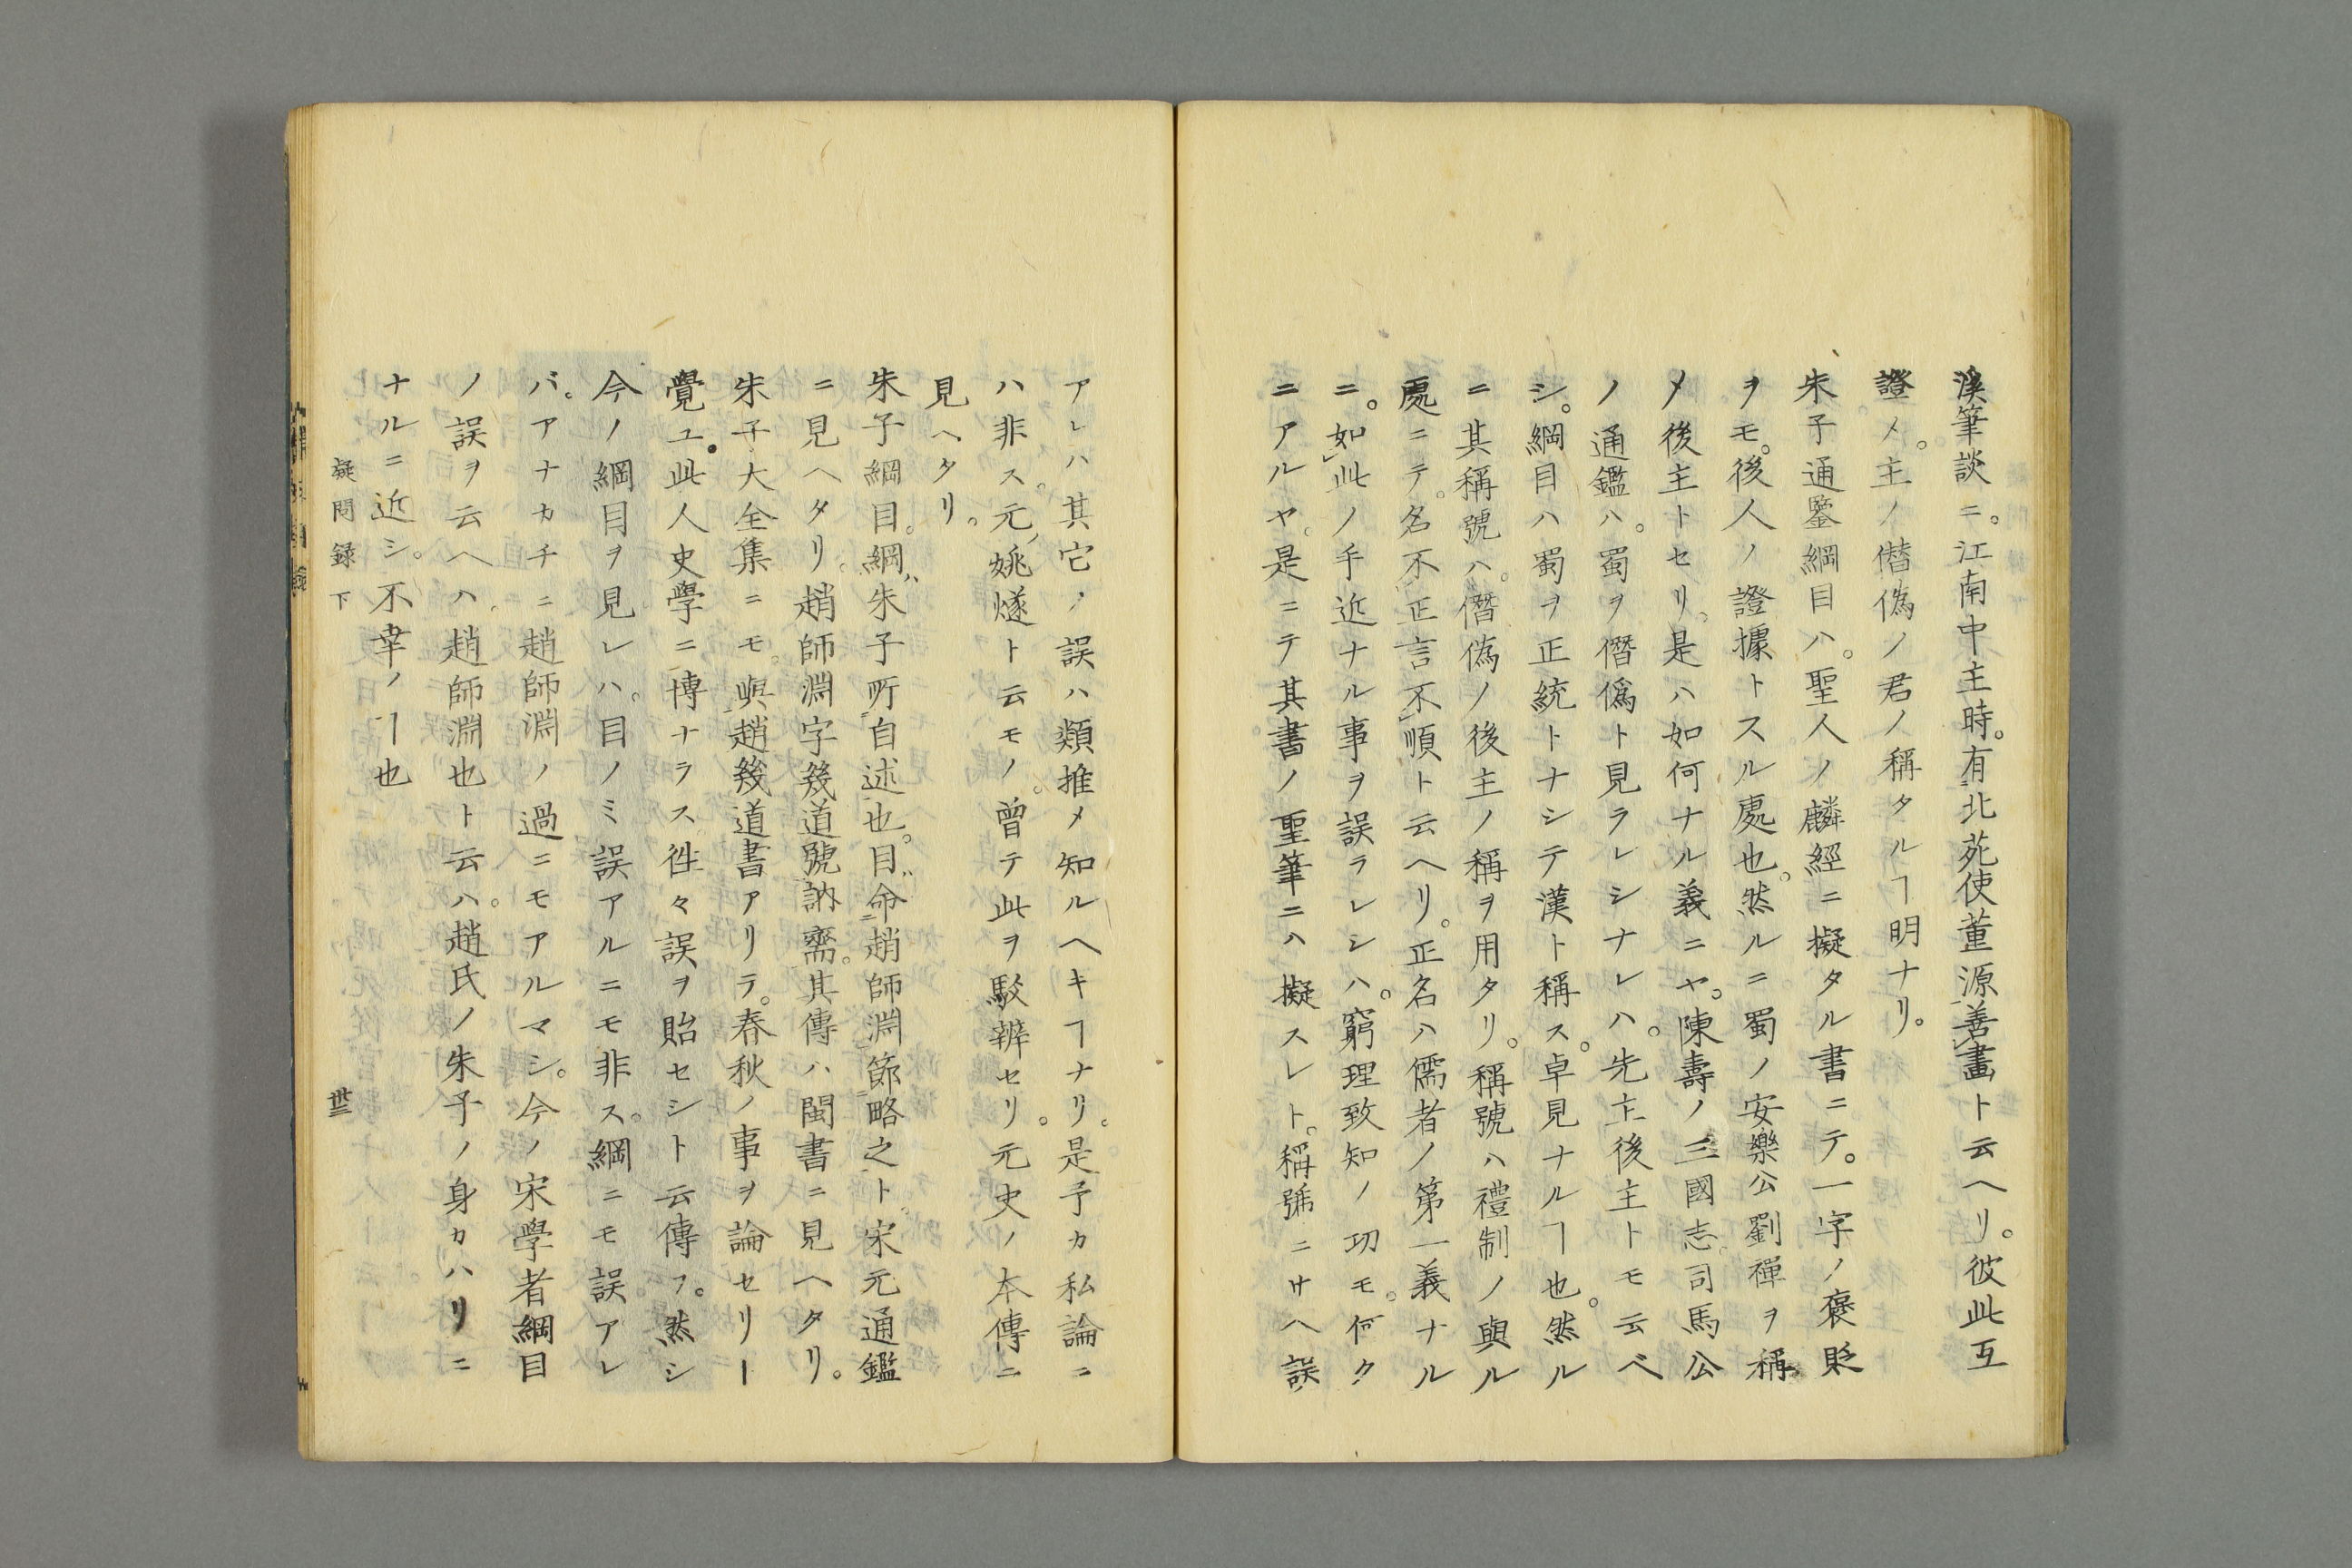 溪筆談ニ。江南中主時。有北苑使董源善畫ト云ヘリ。彼此互
證〆。主ノ僭偽ノ君ノ稱タルヿ明ナリ。
朱子通鑒綱目ハ。聖人ノ麟經ニ擬タル書ニテ。一字ノ褒貶
ヲモ。後人ノ證據トスル處也。然ルニ蜀ノ安樂公劉禪ヲ稱
〆後主トセリ。是ハ如何ナル義ニヤ。陳壽ノ三國志。司馬公
ノ通鑑ハ。蜀ヲ僭僞ト見ラレシナレハ。先主後主トモ云ベ
シ。綱目ハ蜀ヲ正統トナシテ漢ト稱ス。卓見ナルヿ也。然ル
ニ其稱號ハ。僭偽ノ後主ノ稱ヲ用タリ。稱號ハ禮制ノ與ル
處ニテ。名不正言不順ト云ヘリ。正名ハ儒者ノ第一義ナル
ニ。如此ノ手近ナル事ヲ誤ラレシハ。窮理致知ノ功モ。何ク
ニアルヤ。是ニテ其書ノ聖筆ニハ擬スレト。稱號ニサヘ誤
アレハ其它ノ誤ハ類推〆知ルヘキヿナリ。是予カ私論ニ
ハ非ス。元姚燧ト云モノ。曾テ此ヲ駁辨セリ。元史ノ本傳ニ
見ヘタリ。
朱子綱目。綱朱子所自述也。目命趙師淵節略之ト。宋元通鑑
ニ見ヘタリ。趙師淵字幾道號訥齋。其傳ハ閩書ニ見ヘタリ。
朱子大全集ニモ。與趙幾道書アリテ。春秋ノ事ヲ論セリー
覺ユ。此人史學ニ博ナラス。徃々誤ヲ貽セシト云傳フ。然シ
今ノ綱目ヲ見レハ。目ノミ誤アルニモ非ス。綱ニモ誤アレ
バ。アナカチニ趙師淵ノ過ニモアルマシ。今ノ宋學者綱目
ノ誤ヲ云ヘハ。趙師淵也ト云ハ。趙氏ノ朱子ノ身カハリニ
ナルニ近シ。不幸ノヿ也
擬問録 下
丗三